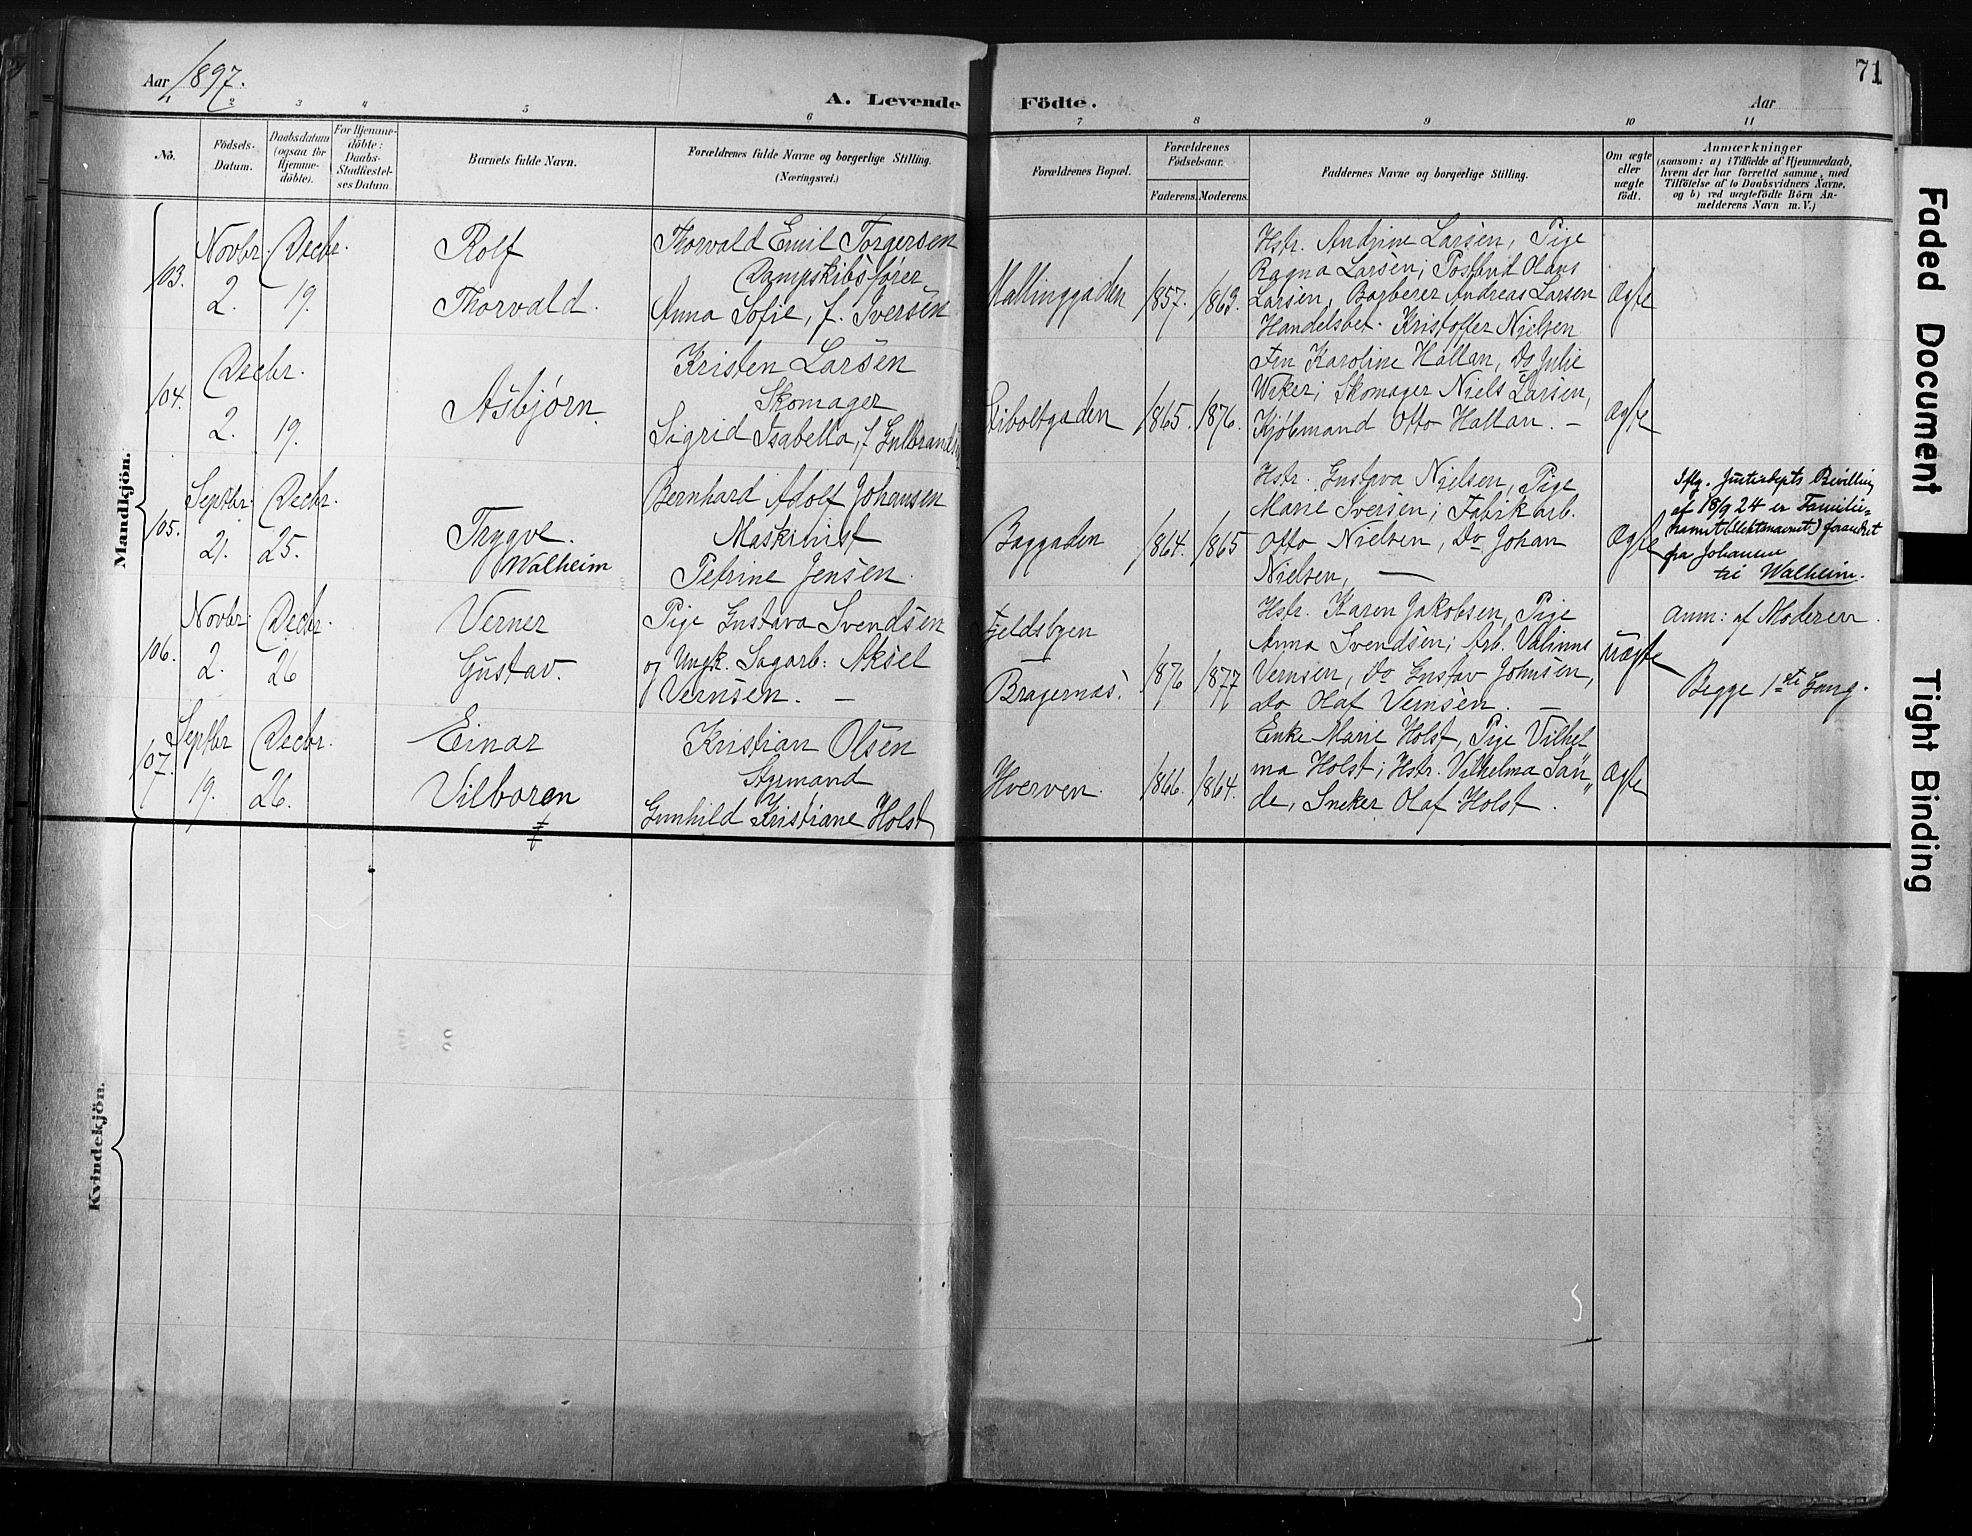 Aar 1897.
A. Levende Födte.
Aar
71
1 2 3 4 5 6 7 8 9 10 11
No.
Födsels-
Datum.
Daabsdatum
(ogsaa for
Hjemme-
döbte).
For Hjemme-
döbte:
Daabs-
Stadfæstel-
ses Datum
Barnets fulde Navn.
Forældrenes fulde Navne og borgerlige Stilling.
(Næringsvei.)
Forældrenes Bopæl.
Forældrenes
Födselsaar.
Faderens. Moderens.
Faddernes Navne og borgerlige Stilling.
Om ægte
eller
uægte
födt.
Anmærkninger
(saasom: a) i Tilfælde af Hjemmedaab,
hvem der har forrettet samme, med
Tilföielse af to Daabsvidners Navne.
og b) ved uægtefödte Börn An-
melderens Navn m. V.)
Mandkjön.
103.
Novbr.
2.
Decbr.
19.
Rolf
Thorvald.
Thorvald Emil Torgersen
Dampskibsfører
Anna Sofie, f. Iversen
Hallinggaden
1857. 1863.
Hstr. Andrine Larsen, Pige
Ragna Larsen; Postbud Olaus
Larsen, Barberer Andreas Larsen
Handelsbet. Kristoffer Nielsen
Ægte
104.
Decbr.
2. 19.
Asbjørn.
Kristen Larsen
Skomager
Sigrid Isabella, f. Gulbrandsen
1865. 1876.
Fru Karoline Hallan, Do Julie
Weker; Skomager Niels Larsen,
Kjøbmand Otto Hallan. –
Ægte
105.
Septbr.
21.
Decbr.
25.
Trygve.
Walheim
Bernhard Adolf Johansen
Maskinist
Petrine Jensen.
Baggaden
1864. 1865
Hstr. Gustava Nielsen, Pige
Marie Iversen; Fabrikarb.
Otto Nielsen, Do Johan
Nielsen, —
Ægte
Iflg. Justisdepts Bevilling
af 18/9 24 er Familie-
navnet (Slektsnavnet) forandret
fra Johansen
til Walheim.
106.
Novbr.
2.
Decbr.
26
Verner
Gustav.
Pige Gustava Svendsen
og Ungk. Sagarb: Aksel
Vernsen. –
Fjeldsbyen
Bragernæs.
1876 1877
Hstr. Karen Jakobsen, Pige
Anna Svendsen; Arb. Valinus
Vernsen, Do Gustav Johnsen,
Do Olaf Vernsen. –
uægte
Anm: af Moderen.
Begge 1ste Gang.
107.
Septbr
19.
Decbr.
26.
Einar
Vilboren
Kristian Olsen
Styrmand
Gunhild Kristiane Holst
Hverven.
1866. 1864.
Enke Marie Holst, Pige Vilhel
ma Holst; Hstr. Vilhelma San„
de, Sneker Olaf Holst.
Ægte
Kvindekjön.
Faded Document
Tight Binding